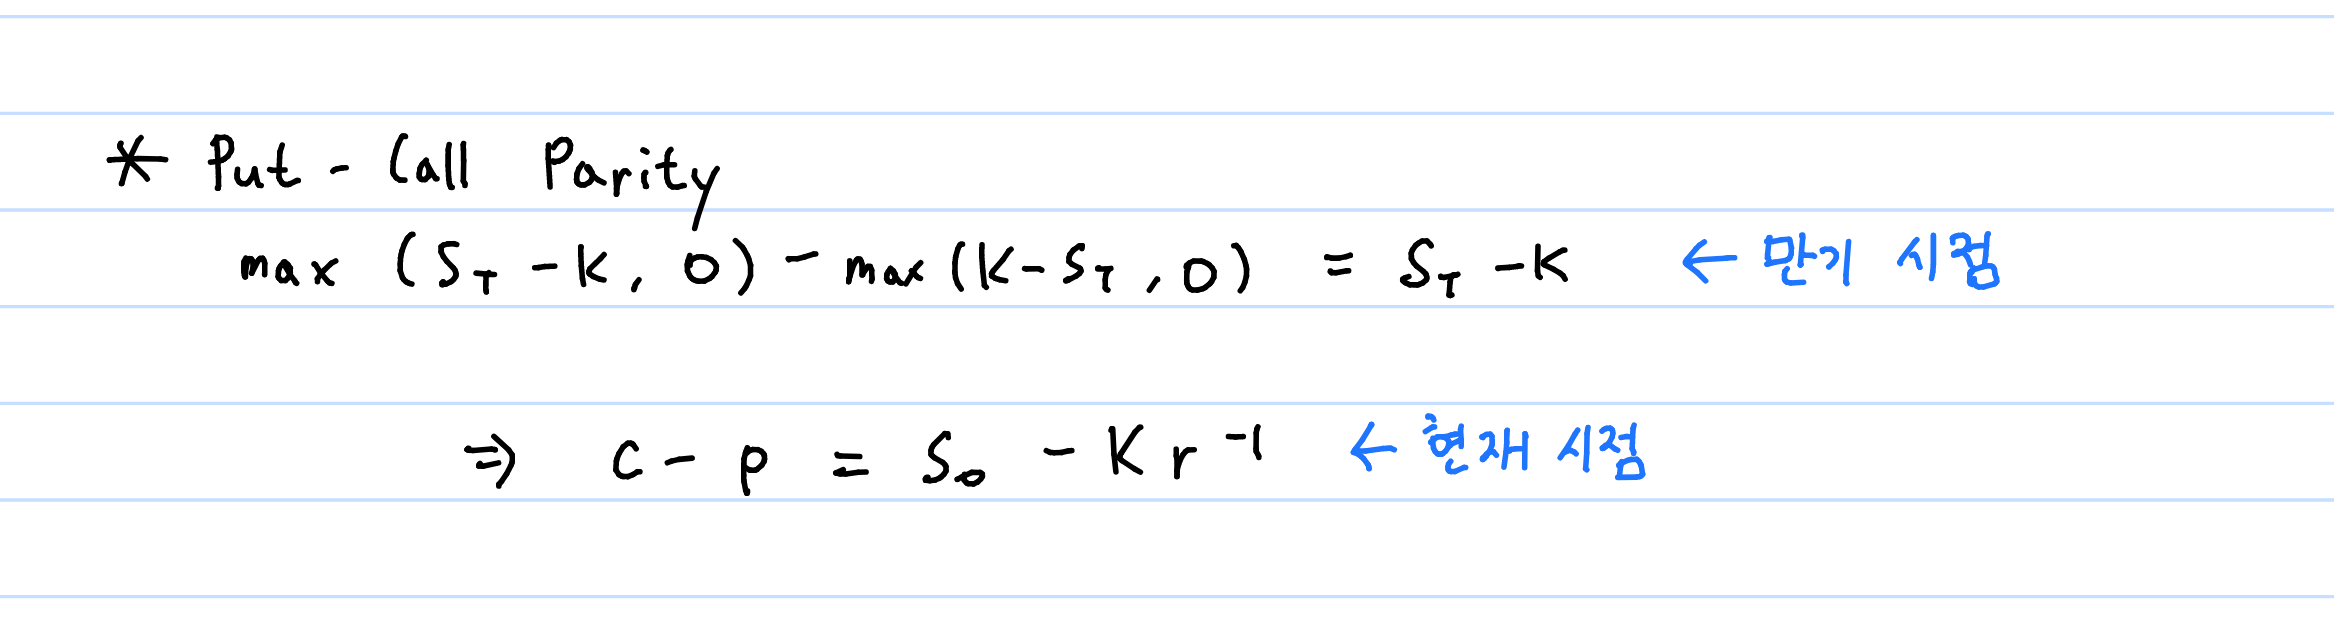 * Put - Call Parity
max (S_T - K, 0) - max (K - S_T, 0) = S_T - K ← 만기 시점
⇒ c - p = S_0 - K r^-1 ← 현재 시점